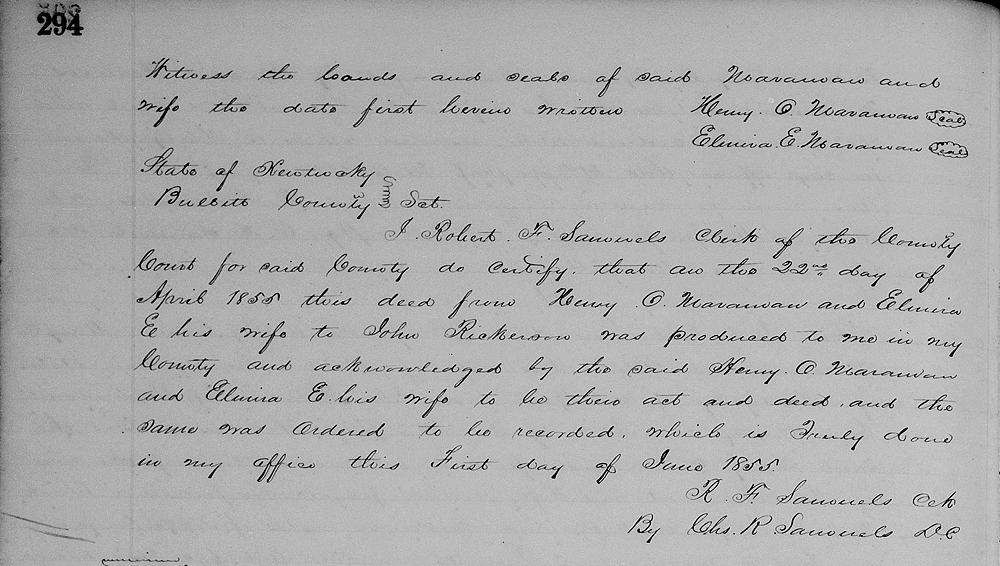 294
Witness the hands and seals of said Maraman and
wife the date first herein written Henry. C. Maraman Seal
Elmira. E. Maraman Seal
State of Kentucky
Bullitt County Sct.
I. Robert. F. Samuels Clerk of the County
Court for said County do certify. that on the 22nd day of
April 1855 this deed from Henry C. Maraman and Elmira
E his wife to John Rickerson was produced to me in my
County and acknowledged by the said Henry. C. Maraman
and Elmira E. his wife to be their act and deed. and the
same was ordered to be recorded. which is Truly done
in my office this First day of June 1855.
R. F. Samuels Clk
By Chs. R Samuels D.C